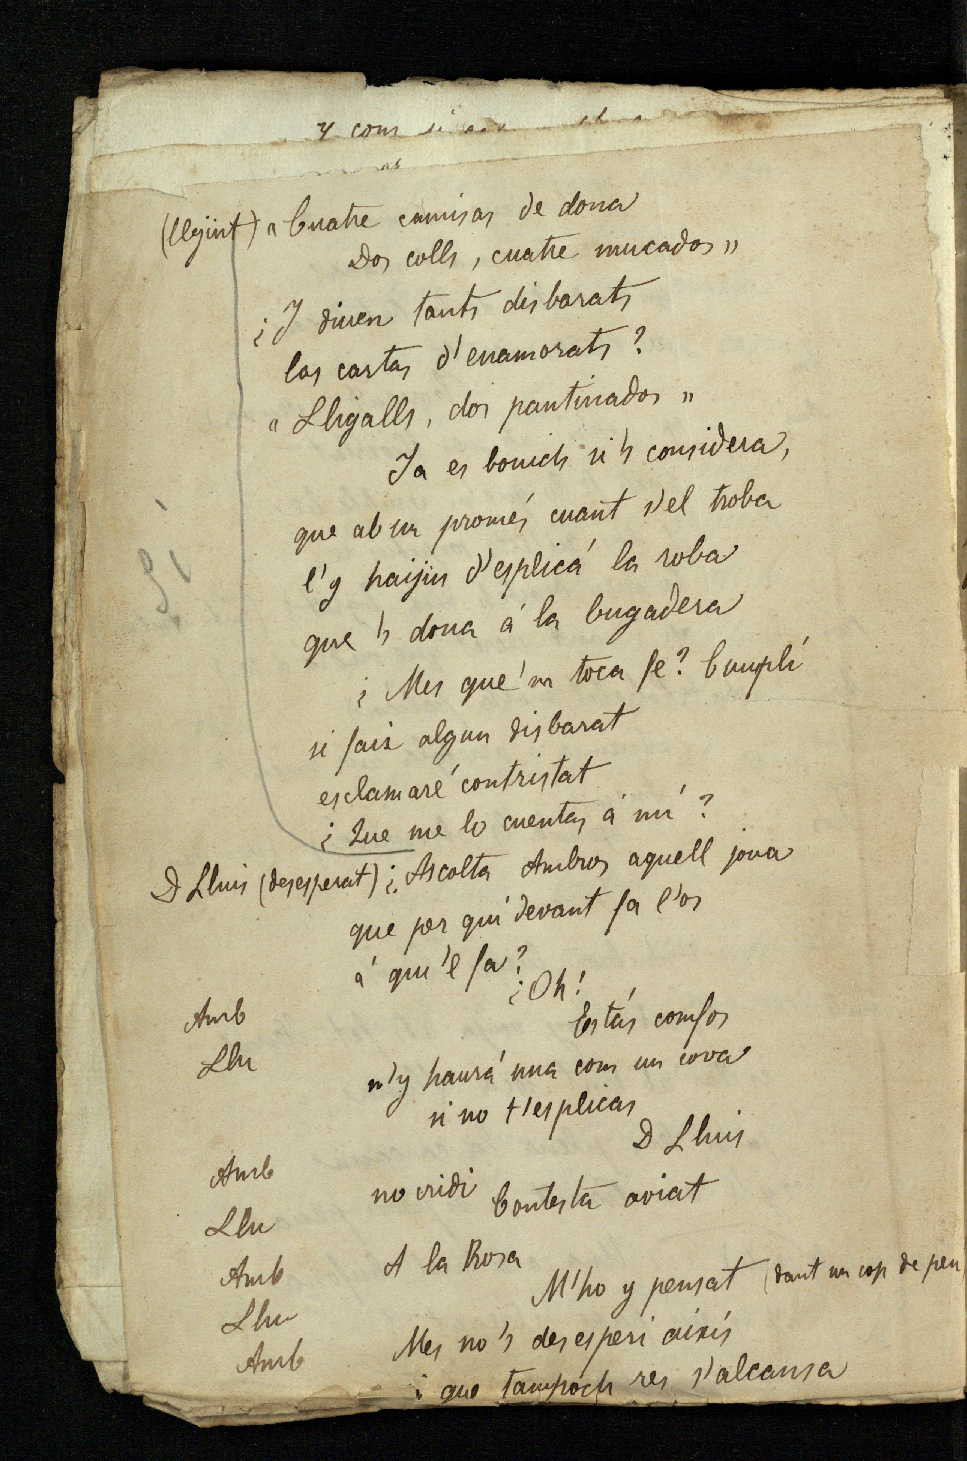 y com
(llegint) « Cuatre camisas de dona
Dos colls, cuatre mucados »
¿Y diuen tants disbarats
las cartas d'enamorats?
« Lligalls, dos pantinados »
Ja es bonich si 's considera,
que ab un promés cuant s'el troba
l'y haijin d'esplicá la roba
que 's dona á la bugadera
¿ Mes que'm toca fe? Cumplí
si faix algun disbarat
esclamaré contristat
¿ Que me lo cuentas á mí?
Si
D Lluis (desesperat) ¿Ascolta Ambros aquell jova
que per qui devant fa l'os
á qui 'l fa?
Amb ¡Oh!
Llu Estás comfos
n'y haurá una com un cova
si no t'esplicas
Amb D Lluis
no cridi
Llu Contesta aviat
Amb A la Rosa
Llu M'ho y pensat (dant un cop de peu
Amb Mes no 's desesperi aixís
¡ que tampóch res s'alcansa